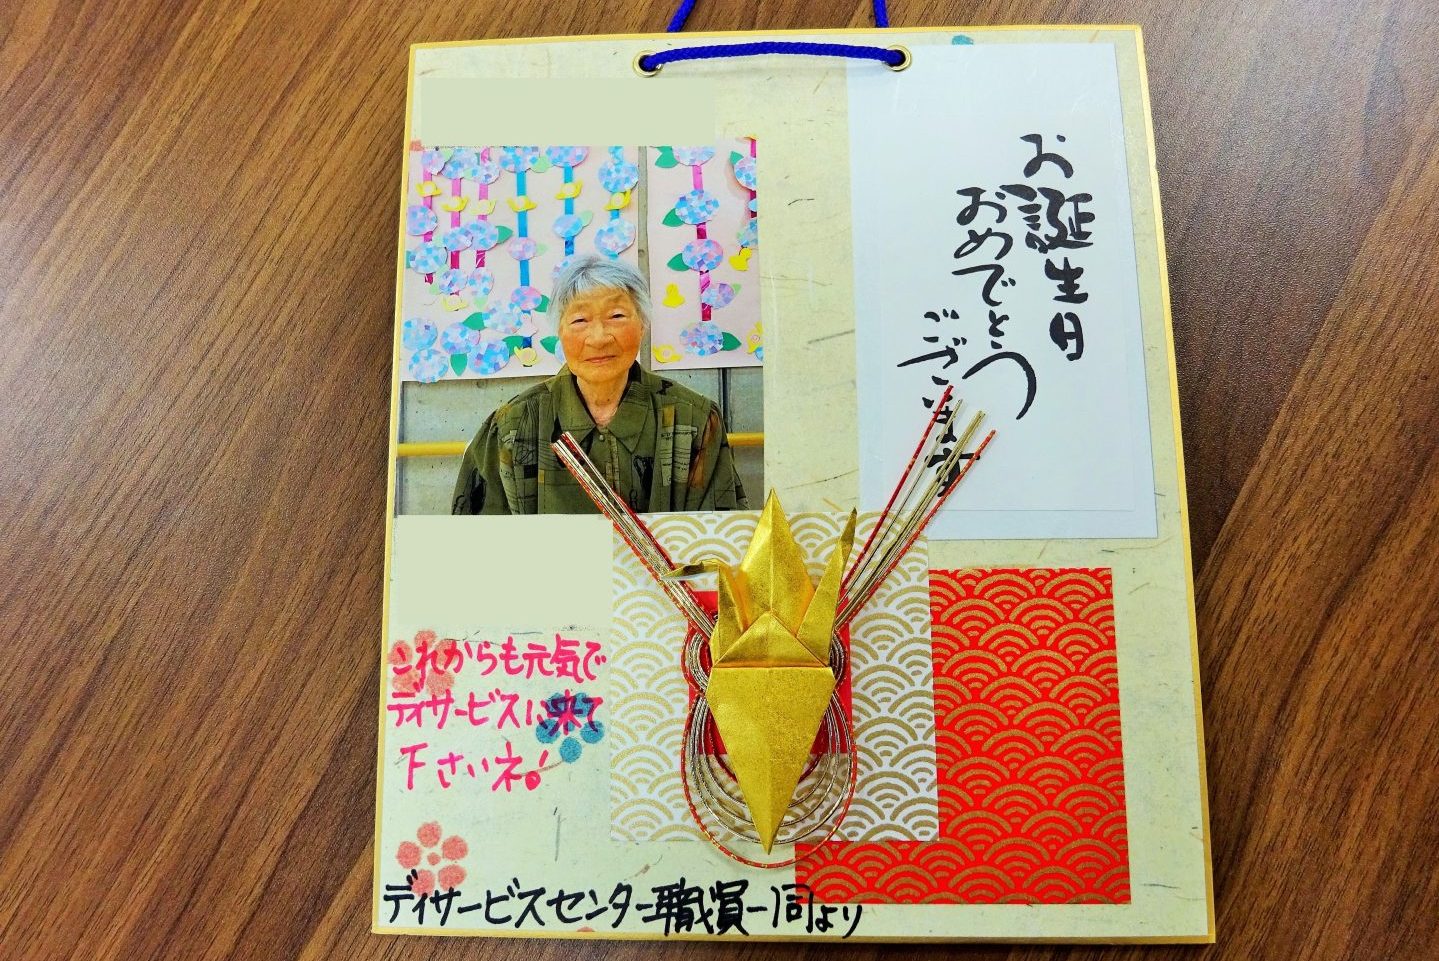 お誕生日
おめでとう
ございます
これからも元気で
デイサービスに来て
下さいネ!
デイサービスセンター職員一同より